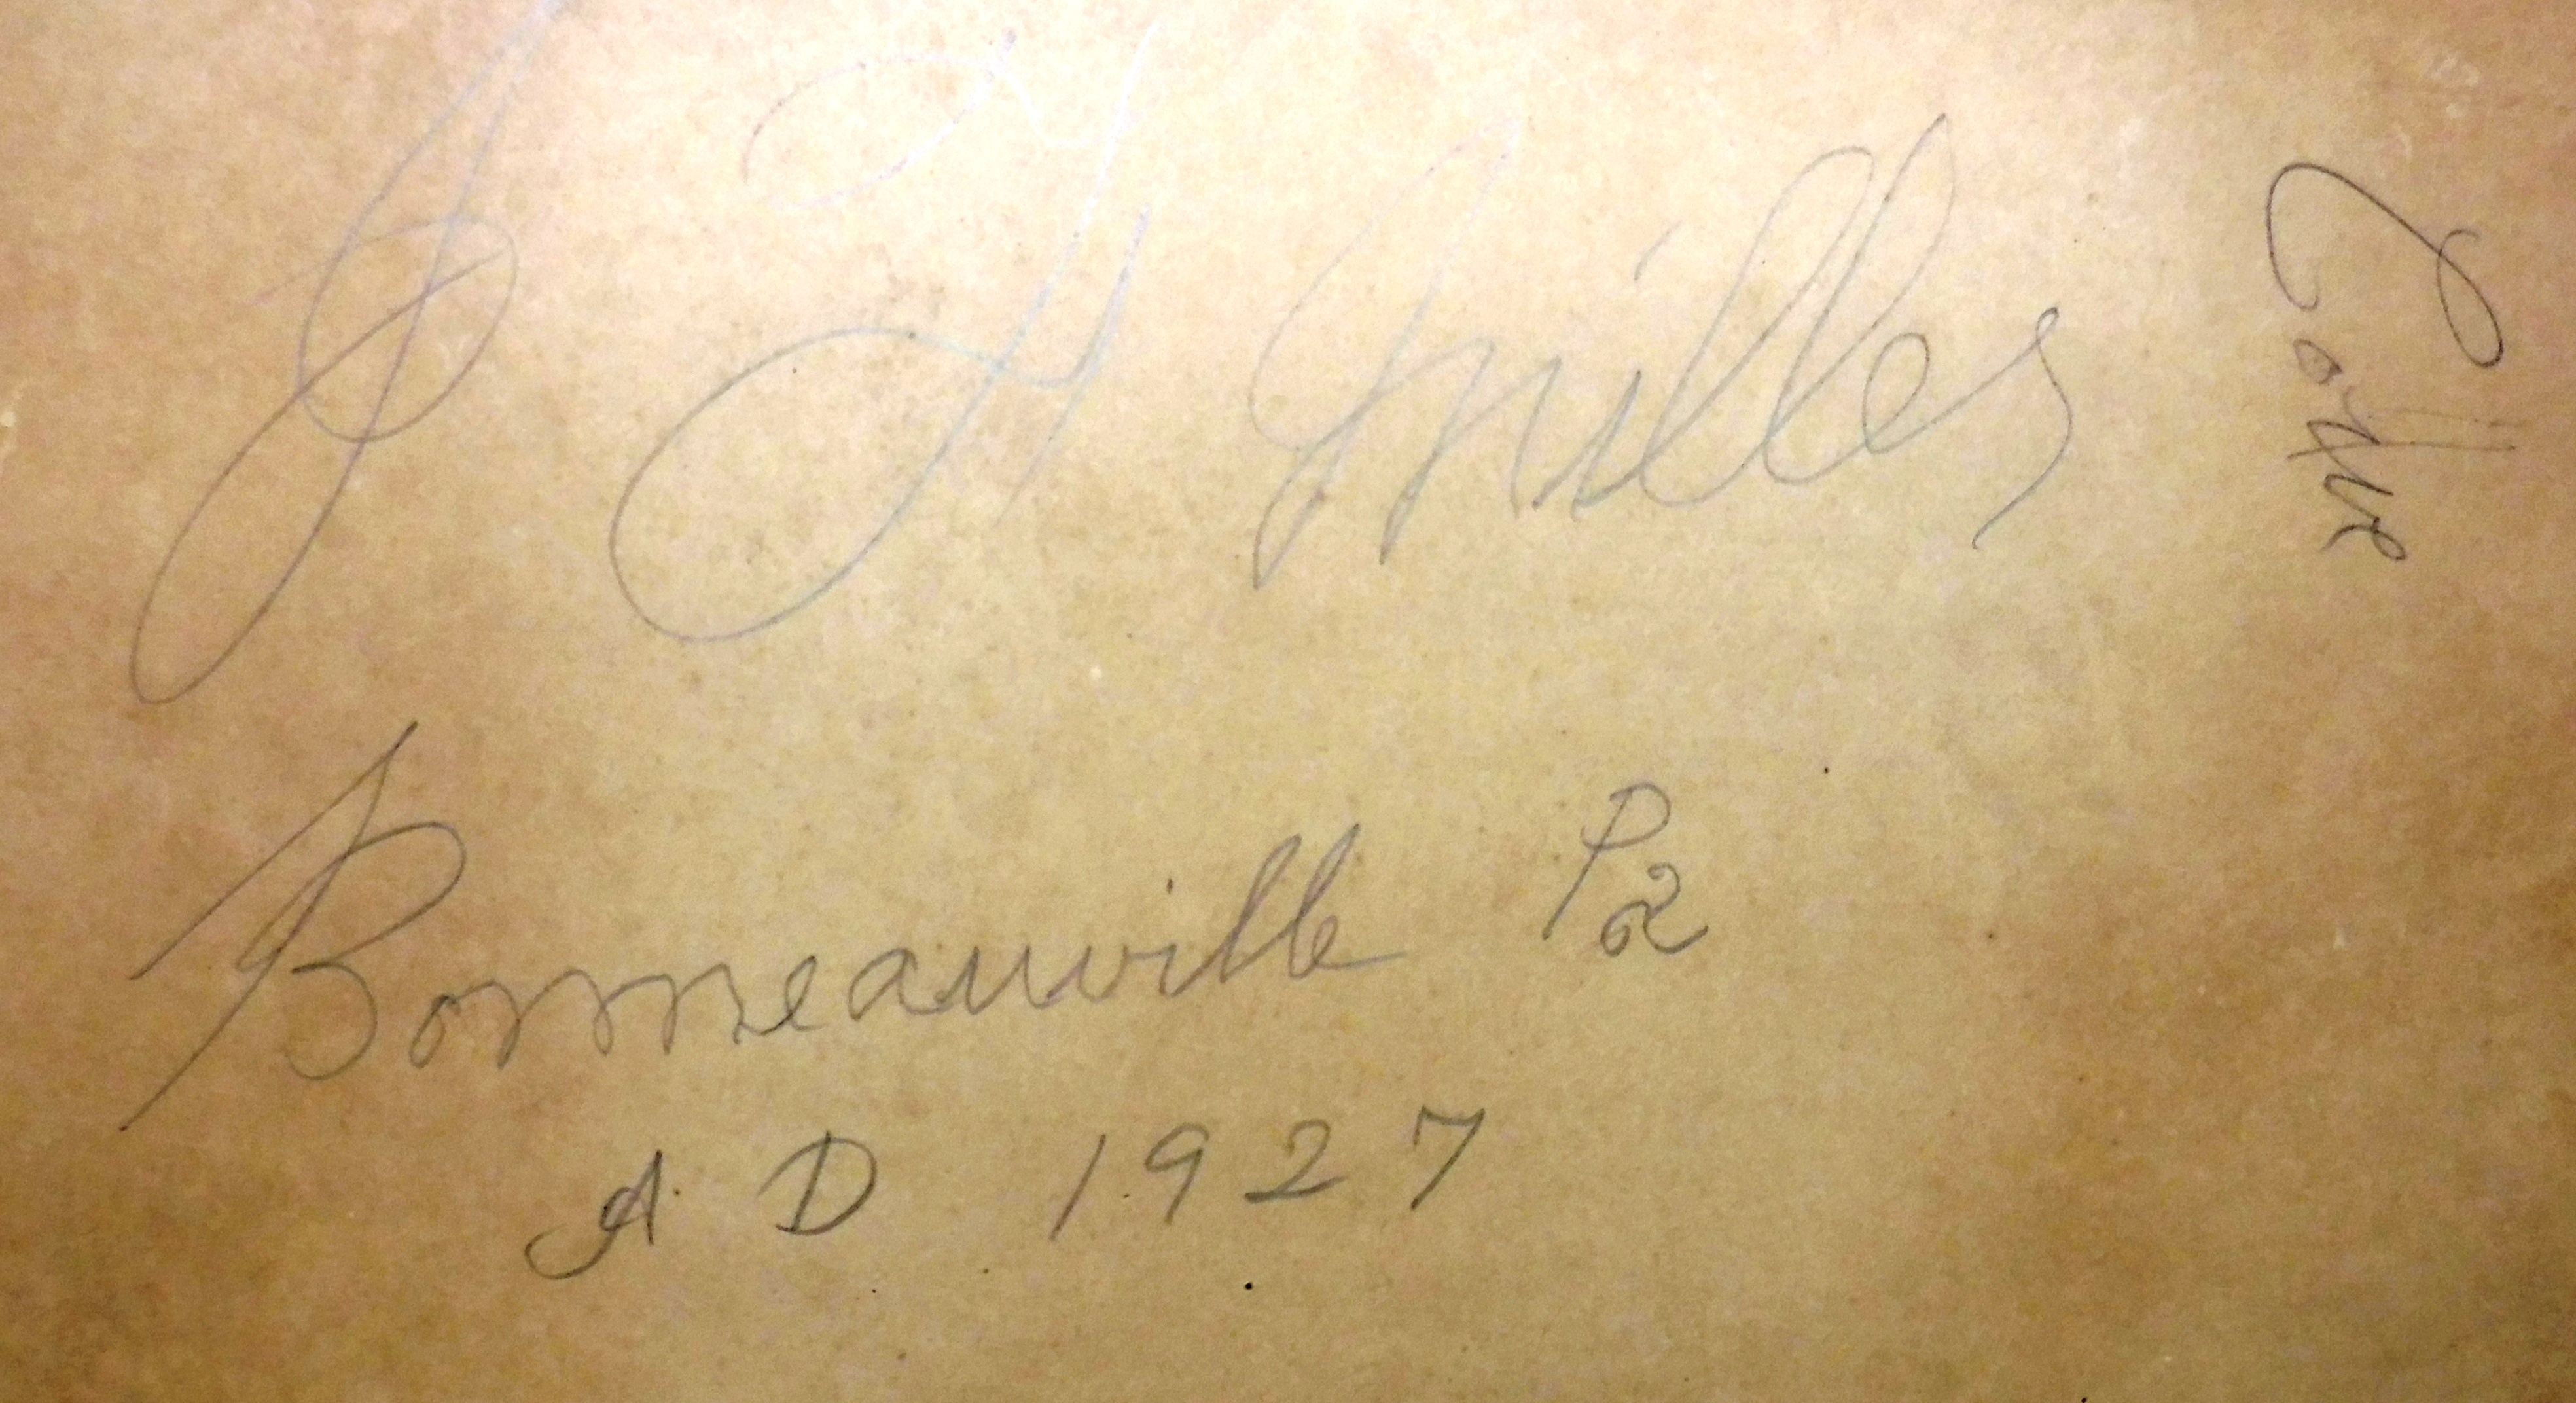 H Miller
Bonneauville Pa
A D 1927